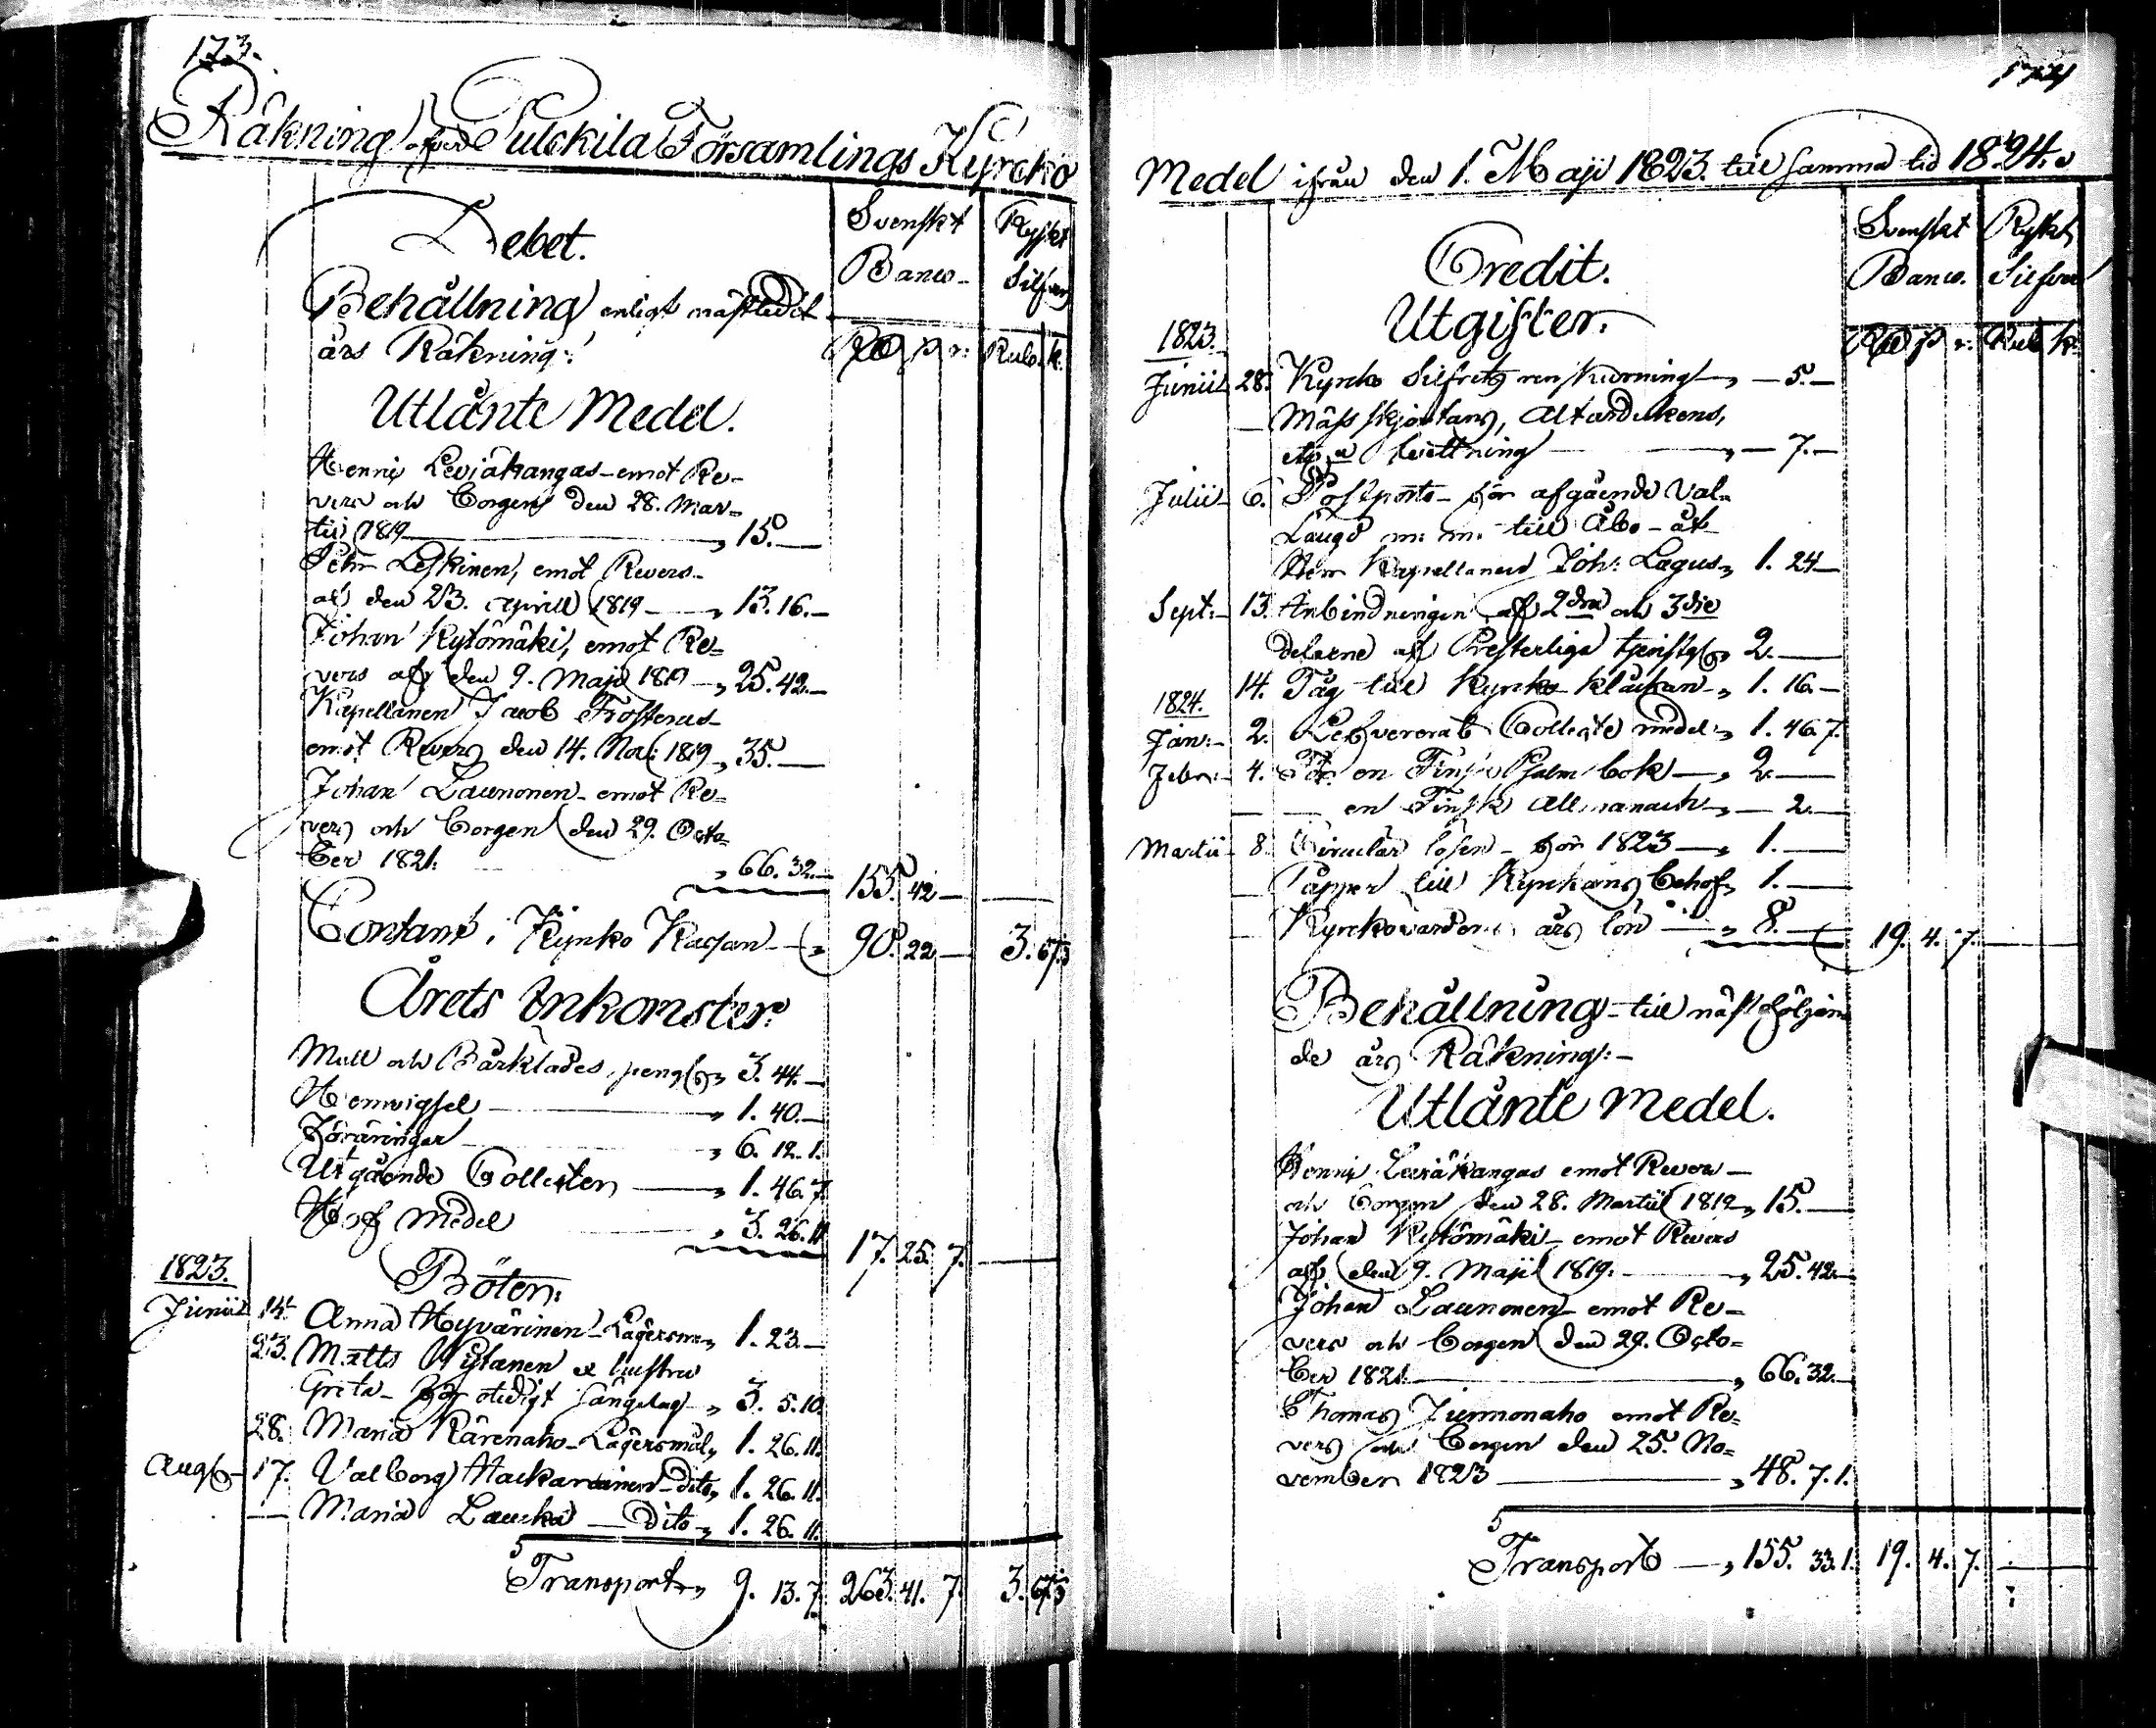 173.
Räkning öfver Pulckila Församlings Kyrcko
Debet.
Svenskt Banco
Ryskt Silfver
Behållning enligt nästledit
års Räkning:
Rd ß r: Rub. k.
Utlånte Medel.
Henric Leviäkangas emot Re-
vers och Borgen den 28. Mar-
tii 1819 " 15.—
Petter Leskinen, emot Revers
af den 23. Aprill 1819 " 13. 16.—
Johan Kytömäki, emot Re-
vers af den 9. Maji 1819 " 25. 42.—
Kapellanen Jacob Frosterus
emot Revers den 14. Nov: 1819 " 35.—
Johan Launonen emot Re-
vers och Borgen den 29. Octo-
ber 1821. " 66. 32.— 155. 42 —
Contant i Kyrko Kassan " 90. 22 — 3. 67½
Årets Inkomster:
Mull och Bårklädes peng:r " 3. 44.—
Hemvigsel " 1. 40.—
Föräringar " 6. 12. 1.
Utgående Collecter " 1. 46. 7
Håf Medel " 3. 26. 11. 17. 25. 7.
1823. Böter:
Junii 14. Anna Hyvärinen Lägersm. " 1. 23.—
23. Matts
Greta för otidigt sängelag " 3. 5. 10.
28. Maria Kärenaho Lägersmål " 1. 26. 11.
Aug: 17. Valborg Hackarainen dito " 1. 26. 11.
— Maria Laucka dito " 1. 26. 11.
Transport " 9. 13. 7. 263. 41. 7. 3. 67½
174
Medel ifrån den 1. Maji 1823. till samma tid 1824.
Credit.
Svenskt Banco.
Ryskt Silfver
Utgifter.
Rd ß r: Rub k:
1823.
Junii 28. Kyrcko Silfrets renskurning " — 5.—
— Mäss skjortans, Altardukens,
etc a tvettning " — 7.—
Julii 6. Postporto för afgående Val-
Längd m. m. till Åbo åt
Herr Kapellanen Joh: Lagus " 1. 24—
Sept: 13. Inbindningen af 2dra och 3die
delarne af Presterliga tjenstg: " 2.—
14. Tåg till Kyrko Klåckan " 1. 16.—
1824.
Jan: 2. Lefvererat Collecte medel " 1. 46. 7.
Febr: 4. För en Finsk Psalm bok " 2.—
— — en Finsk Allmanach " — 2.—
Martii 8. Circulär lösen för 1823 " 1.—
— Papper till Kyrckans behof " 1.—
— Kyrckovärdens års lön " 8.— 19. 4. 7.
Behållning till nästföljan-
de års Räkning:
Utlånte Medel.
Henric Leviäkangas emot Revers
och Borgen den 28. Martii 1819 " 15.—
Johan Kytömäki emot Revers
af den 9. Maji 1819. " 25. 42.—
Johan Launonen emot Re-
vers och Borgen den 29. Octo-
ber 1821. " 66. 32.—
Thomas Junnonaho emot Re-
vers och Borgen den 25. No-
vember 1823 " 48. 7. 1.
Transport " 155. 33. 1. 19. 4. 7.